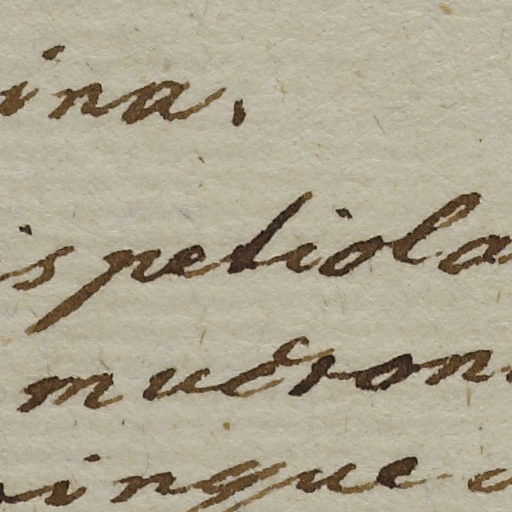 ina.
is petiola
mucron
inque